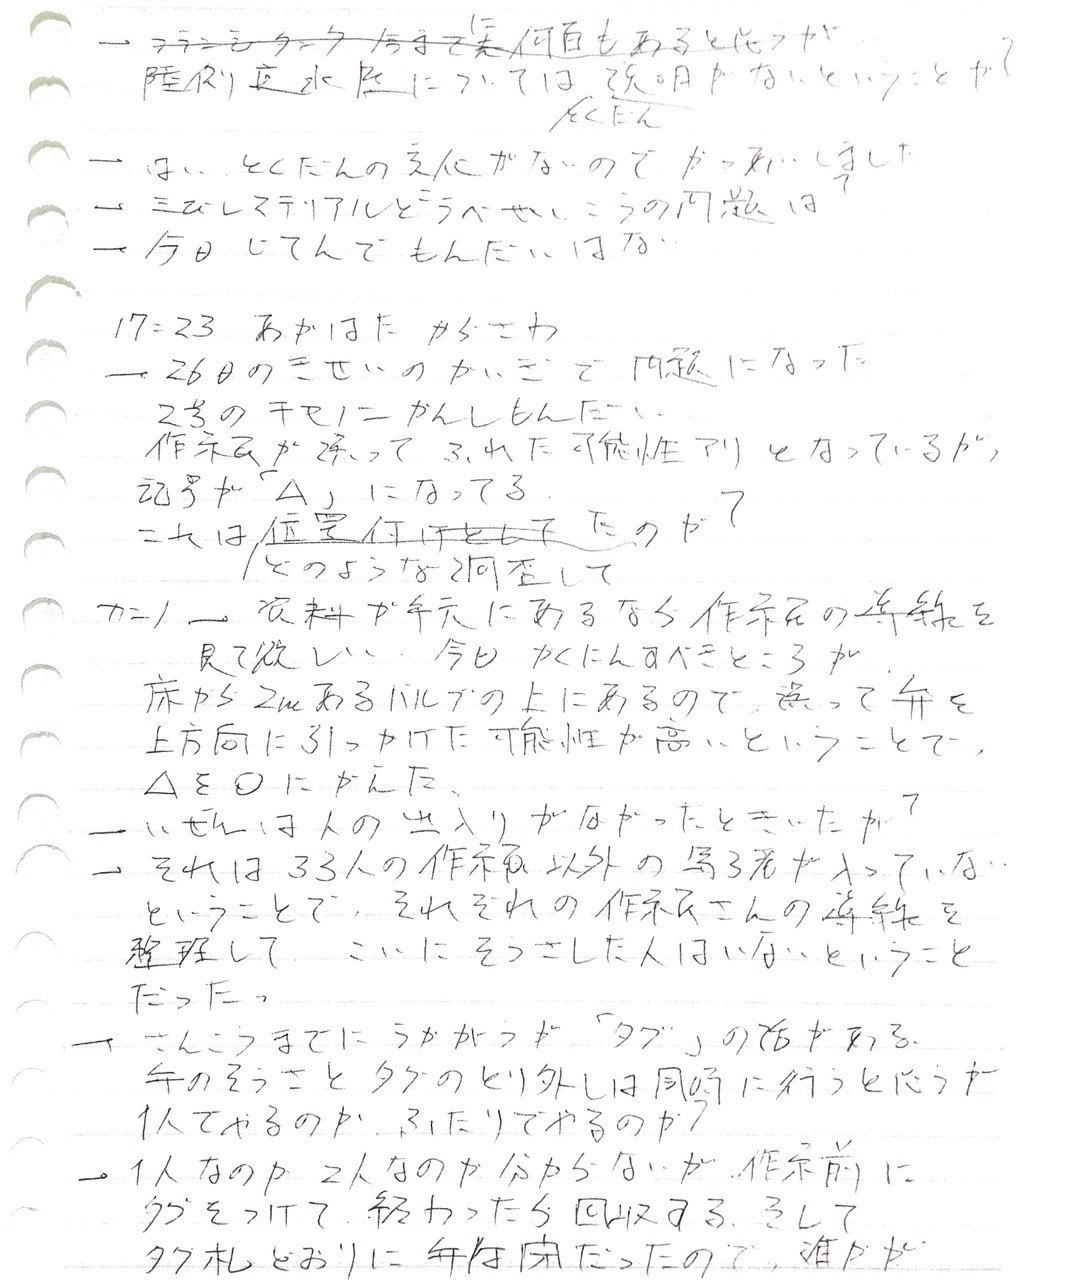 → 今まで何回もあると思うが
陸側遮水壁については説明がないということか?
とくだん
→ はい、とくだんの変化がないのでかつあいしました
→ 三びしマテリアルどうへせいこうの問題は?
→ 今日じてんでもんだいはない
17:23 あかはた からさわ
→ 26日のきせいのかいぎで問題になった
2号のチモノニかんしもんだい
作業員が誤ってふれた可能性アリとなっているが、
記号が「△」になってる
これは位置付けとしてたのか?
どのような調査して
カンノ → 資料が手元にあるなら作業員の導線を
見て欲しい 今日かくにんすべきところが
床から2mあるバルブの上にあるので、誤って弁を
上方向に引っかけた可能性が高いということで、
△を○にかえた、
→ いぜんは人の出入りがなかったときいたが?
→ それは33人の作業員以外の者が入っていない
ということで、それぞれの作業員さんの導線を
整理して こいにそうさした人はいないということ
だった。
→ さんこうまでにうかがうが「タグ」の話がある、
弁のそうさとタグのとり外しは同時に行うと思うが
1人でやるのか、ふたりでやるのか?
→ 1人なのか2人なのか分からないが、作業前に
タグをつけて、終わったら回収する、そして
タグ札どおりに弁は閉だったので、誰かが